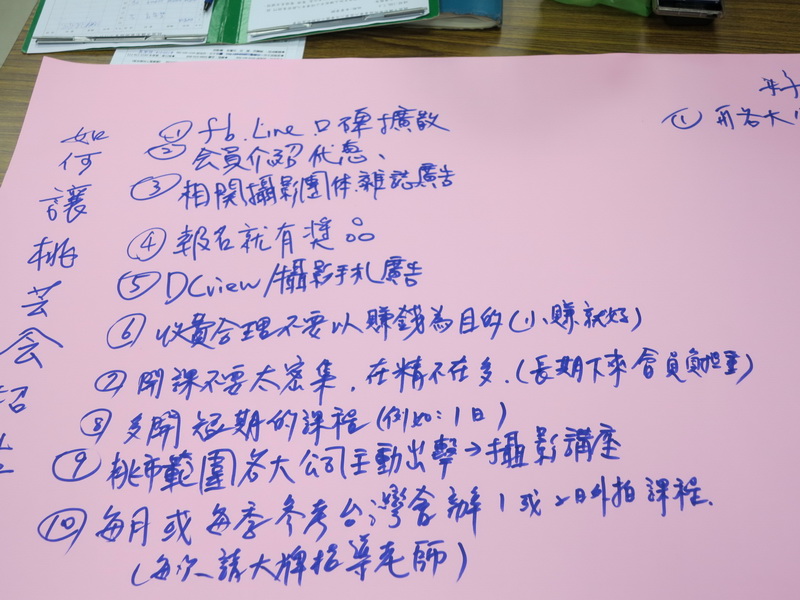 如何讓桃芸会招生
① fb.Line 口碑擴散
② 会員介紹优惠、
③ 相関攝影團体.雜誌廣告
④ 報名就有獎品
⑤ DCview/攝影手札廣告
⑥ 收費合理不要以賺錢為目的(小賺就好)
⑦ 開課不要太密集，在精不在多.(長期下來會員負担重)
⑧ 多開短期的課程(例如:1日)
⑨ 桃市範圍各大公司主動出擊→攝影講座
⑩ 每月或每季參考台灣會辦1或2日外拍課程.
(每次請大牌指導老師)
① 再各大